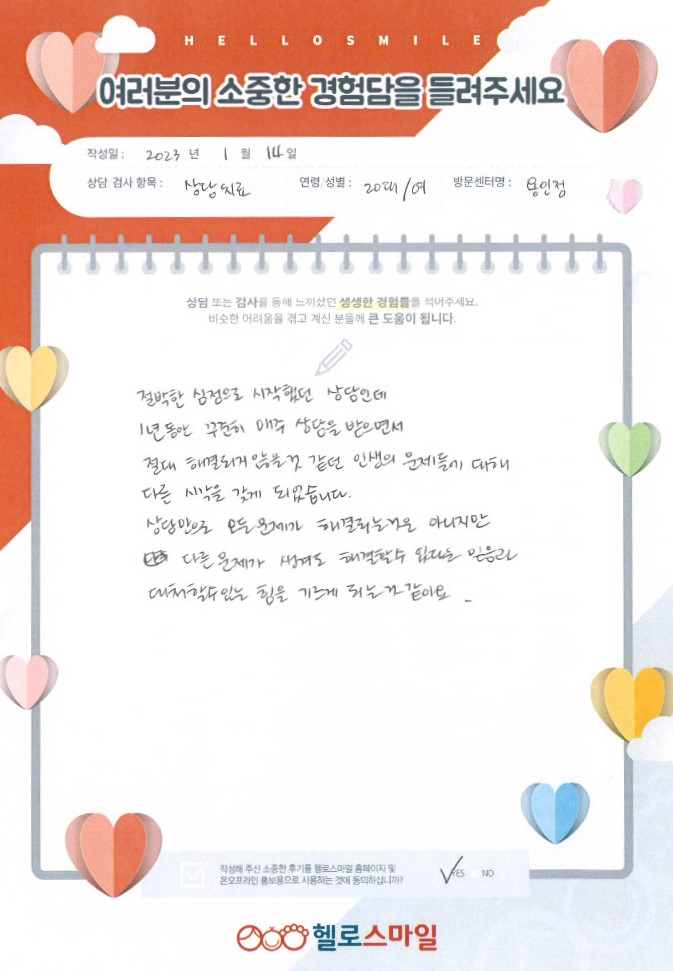 HELLOSMILE
여러분의 소중한 경험담을 들려주세요
작성일 : 2023 년 1 월 14 일
상담 검사 항목 : 상담치료 연령/성별 : 20대/여 방문센터명 : 용인점
상담 또는 검사를 통해 느끼셨던 생생한 경험들을 적어주세요.
비슷한 어려움을 겪고 계신 분들께 큰 도움이 됩니다.
절박한 심정으로 시작했던 상담인데
1년동안 꾸준히 매주 상담을 받으면서
절대 해결되지 않을것 같던 인생의 문제들에 대해
다른 시각을 갖게 되었습니다.
상담만으로 모든 문제가 해결되는것은 아니지만
다른 문제가 생겨도 해결할수 있다는 믿음과
대처할수있는 힘을 기르게 되는것 같아요
작성해 주신 소중한 후기를 헬로스마일 홈페이지 및
온오프라인 홍보용으로 사용하는 것에 동의하십니까? YES NO
헬로스마일